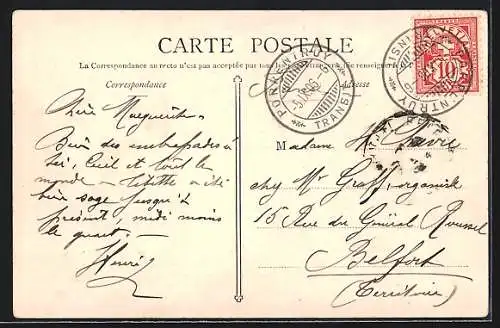 CARTE POSTALE
La Correspondance au recto n'est pas acceptée par tous les
Correspondance
Adresse
PORRENTRUY
TRANSIT
HELVETIA
10
Chère Marguerite
Bien des embrassades à
toi, Cécil et tout le
monde – a été
bien sage jusqu'à
présent, midi moins
le quart –
Henri
Madame H. Favre
chez Mr Graff, organiste
15 Rue du Général Roussel
Belfort
(Territoire)